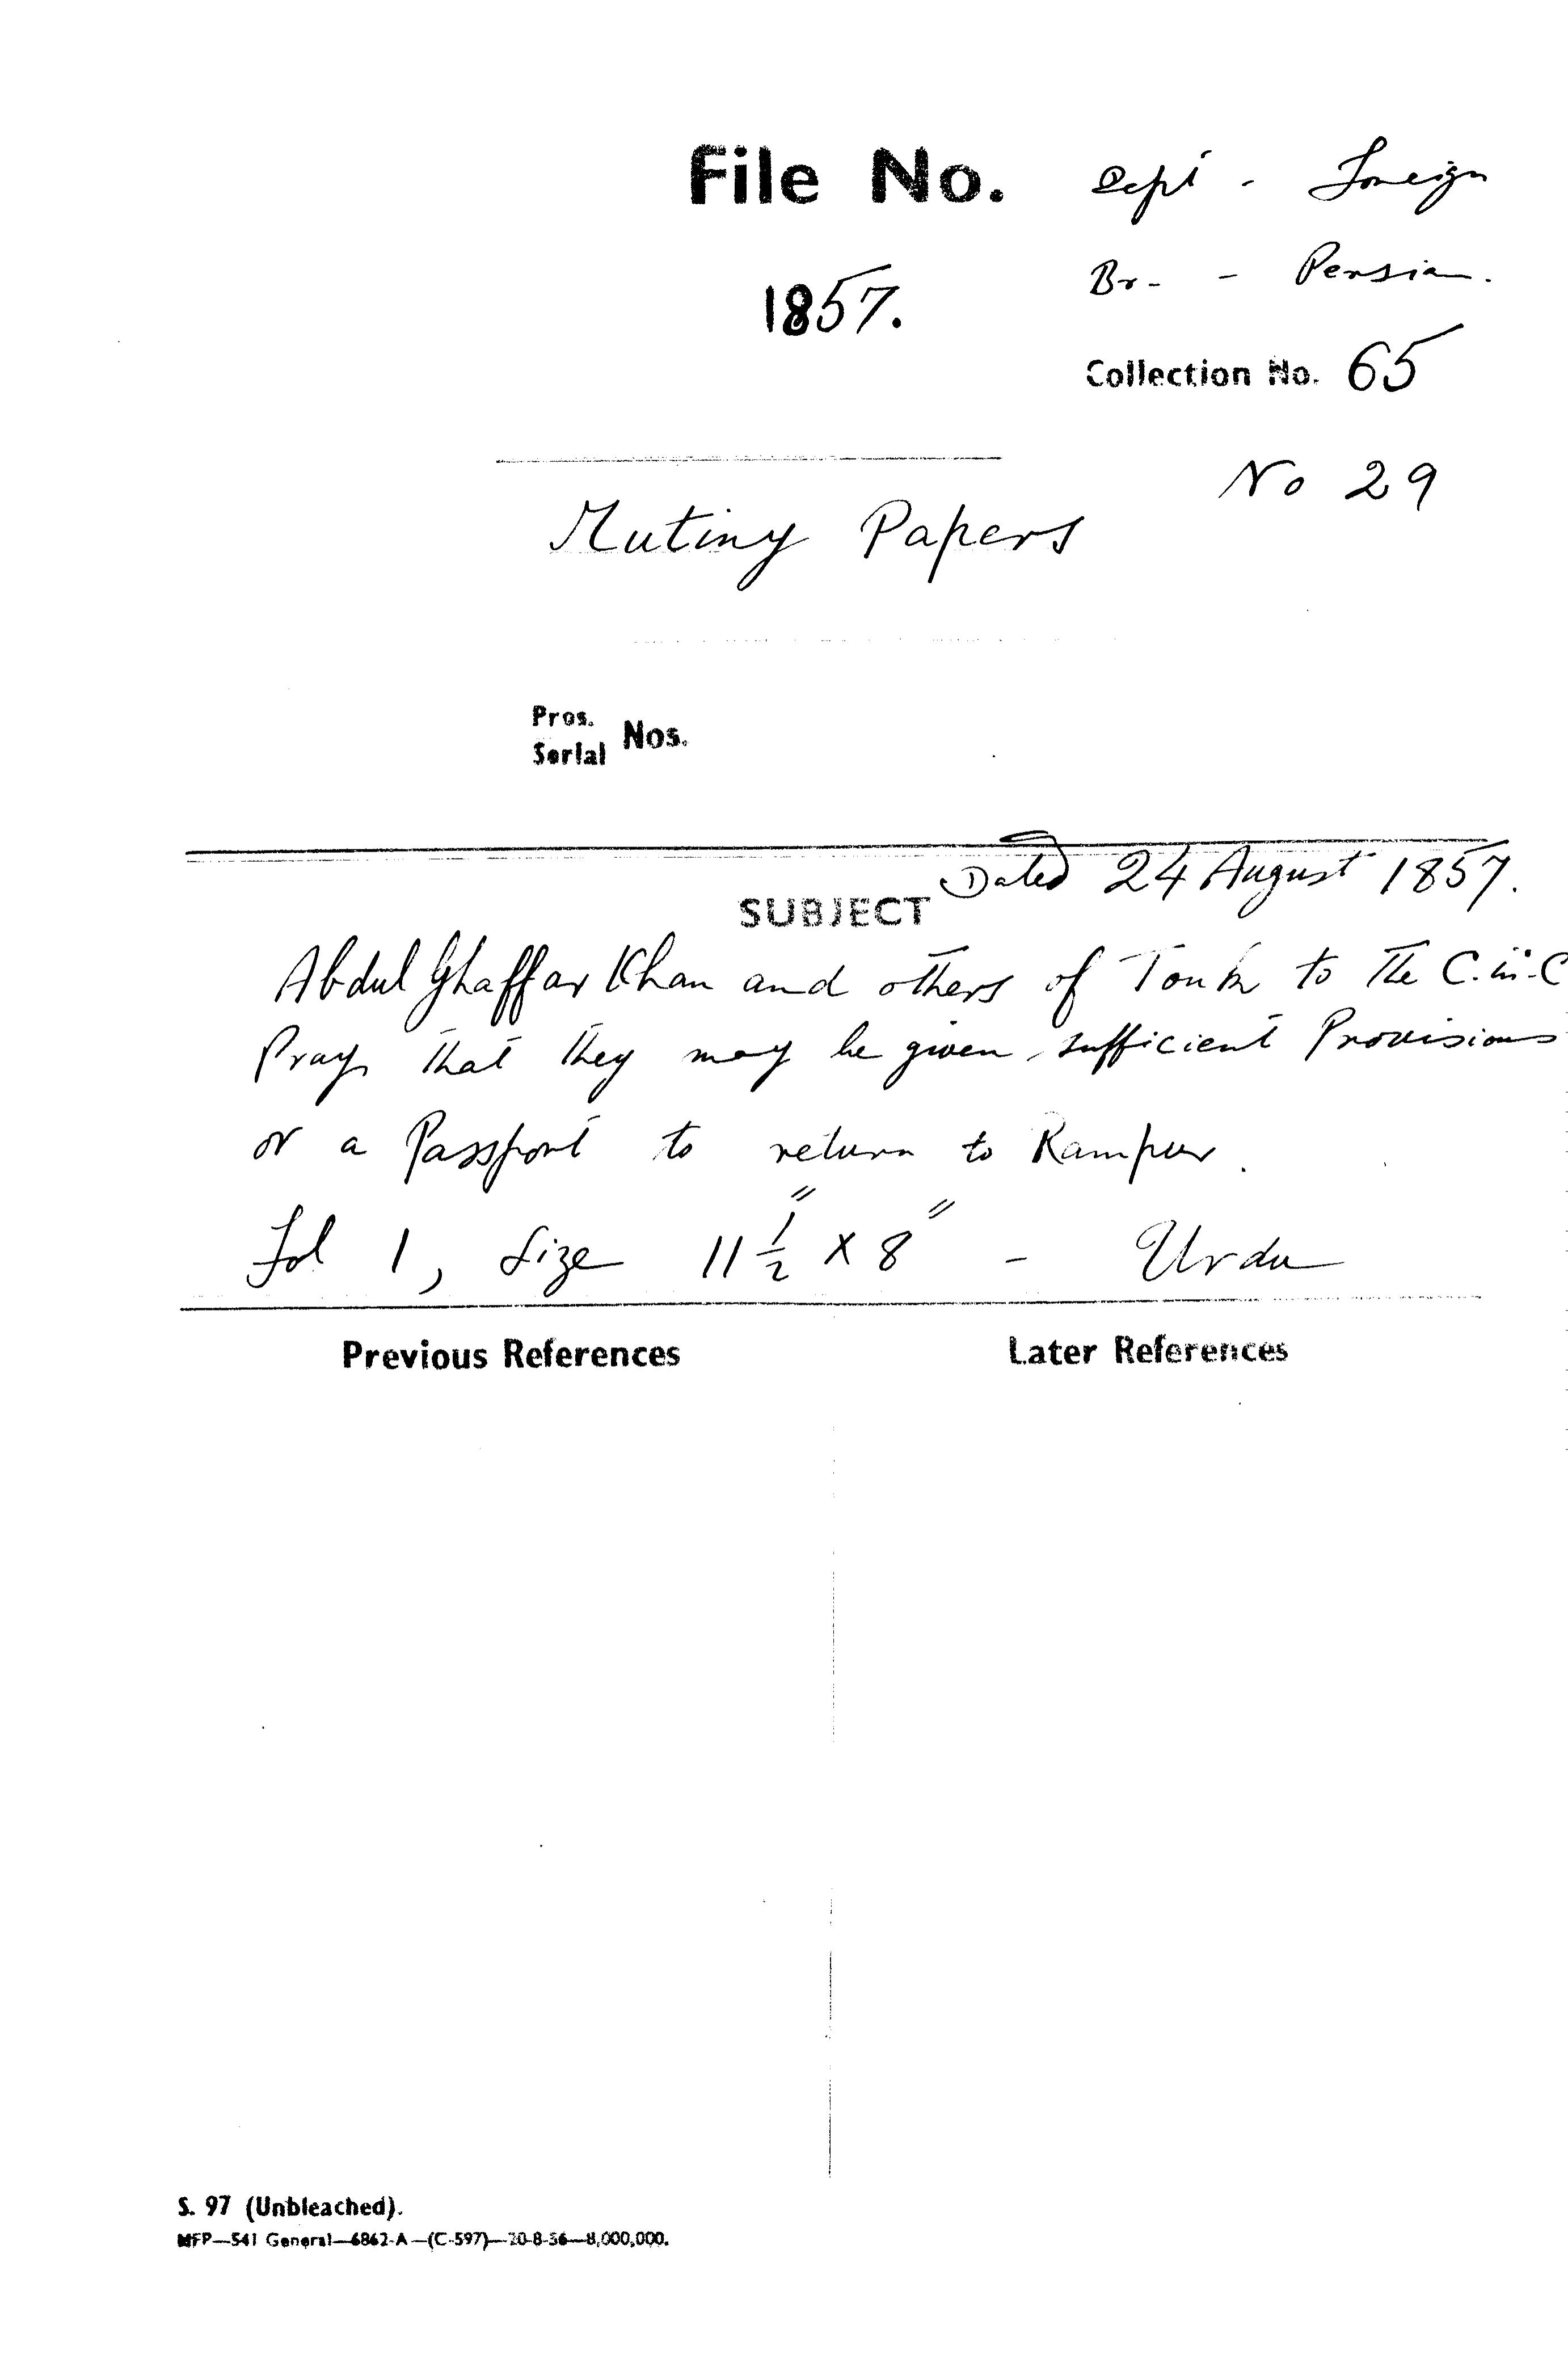 File No. Dept - Foreign
1857. Br- - Persian.
Collection No. 65
No 29
Mutiny Papers
Pros.
Serial Nos.
Dated 24 August 1857.
SUBJECT
Abdul Ghaffar Khan and others of Tonk to the C.in.C
Prays that they may be given sufficient Provisions
or a Passport to return to Rampur.
Fol 1, Size 11 1/2" X 8" - Urdu
Previous References Later References
S. 97 (Unbleached).
MFP—541 General—6862-A—(C-597)—20-8-56—8,000,000.